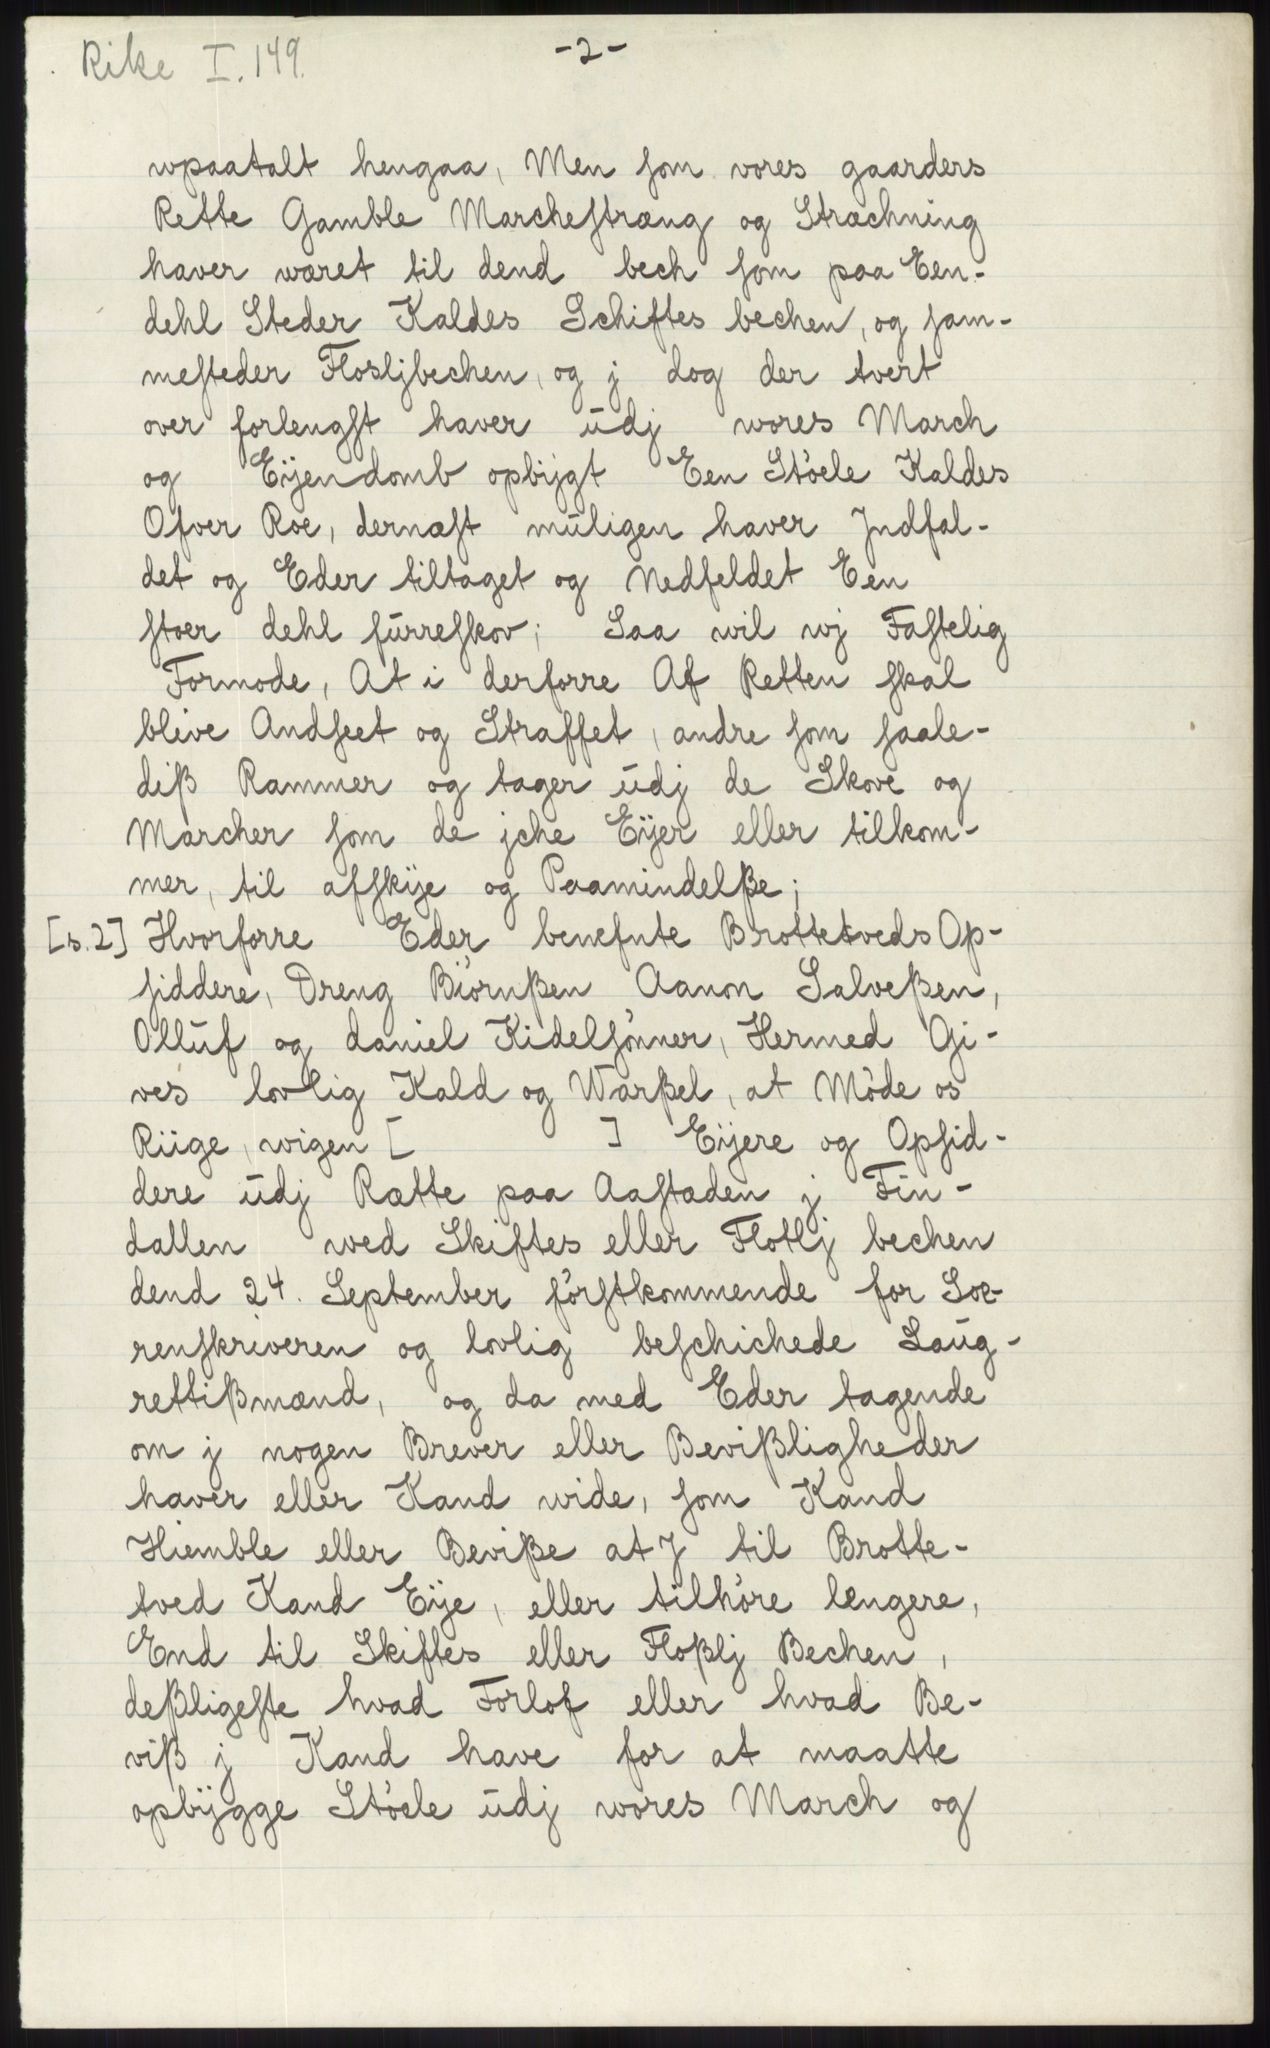 Rike I. 149.
-2-
wpaatalt hengaa, Men som vores gaarders
Rette Gamble Marchestræng og Stræchning
haver wæret til dend bech som paa Een-
dehl Steder Kaldes Schiftes bechen, og som-
mesteder Flosljbechen, og j dog der tvert
over forlengst haver udj wores March
og Eÿendomb opbijgt Een Stöele Kaldes
Ofver Roe, dernæst muligen haver Jndfal-
det og Eder tiltaget og Nedfeldet Een
stoer dehl furreskov; Saa wil wj Fastelig
Formode, At i derforre Af Retten skal
blive Andseet og Straffet, andre som saale-
diß Rammer og tager udj de Skove og
Marcher som de jche Eÿer eller tilkom-
mer, til afskÿe og Paamindelße;
[s.2] Hvorforre Eder benefnte Brottetveds Op-
siddere, Dreng Biörnßen Aanon Salveßen,
Olluf og daniel Kidelsönner, Hermed Gi-
ves lovlig Kald og Warßel, at Möde os
Riige, wigen [ ] Eÿere og Opsid-
dere udj Rætte paa Aastæden j Fin-
dallen wed Skiftes eller Flotlj bechen
dend 24. September förstkommende for Soe-
renskriveren og lovlig beschichede Laug-
rettißmænd, og da med Eder tagende
om j nogen Brever eller Bevißligheder
haver eller Kand wide, som Kand
Hiemble eller Beviße at J til Brotte-
tved Kand Eÿe, eller tilhöre længere,
End til Skiftes eller Floßlj Bechen,
deßligeste hvad Forlof eller hvad Be-
viß j Kand have for at maatte
opbÿgge Stöele udj wores March og